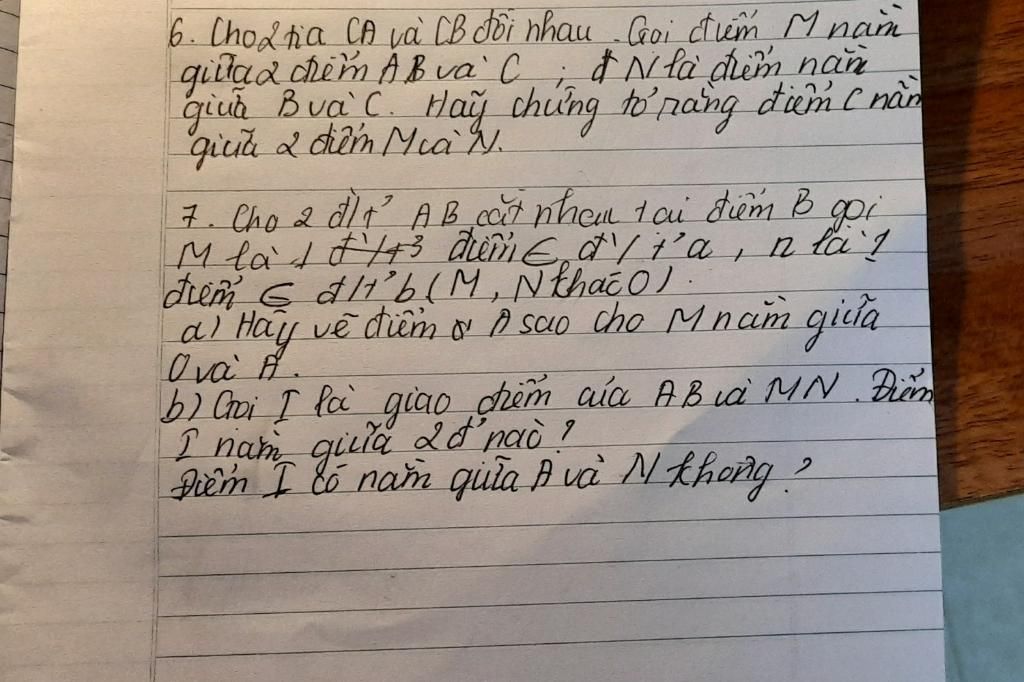 6. Cho 2 tia CA và CB đối nhau. Gọi điểm M nằm
giữa 2 điểm A B và C ; đ N là điểm nằm
giữa B và C. Hãy chứng tỏ rằng điểm C nằm
giữa 2 điểm M và N.
7. Cho 2 đ/t' AB cắt nhau tại điểm B gọi
M là 1 điểm ∈ đ'/t' a, n là 1
điểm ∈ đ/t' b (M, N khác O).
a) Hãy vẽ điểm A sao cho M nằm giữa
O và A.
b) Gọi I là giao điểm của AB và MN. Điểm
I nằm giữa 2 đ' nào?
Điểm I có nằm giữa A và N không?